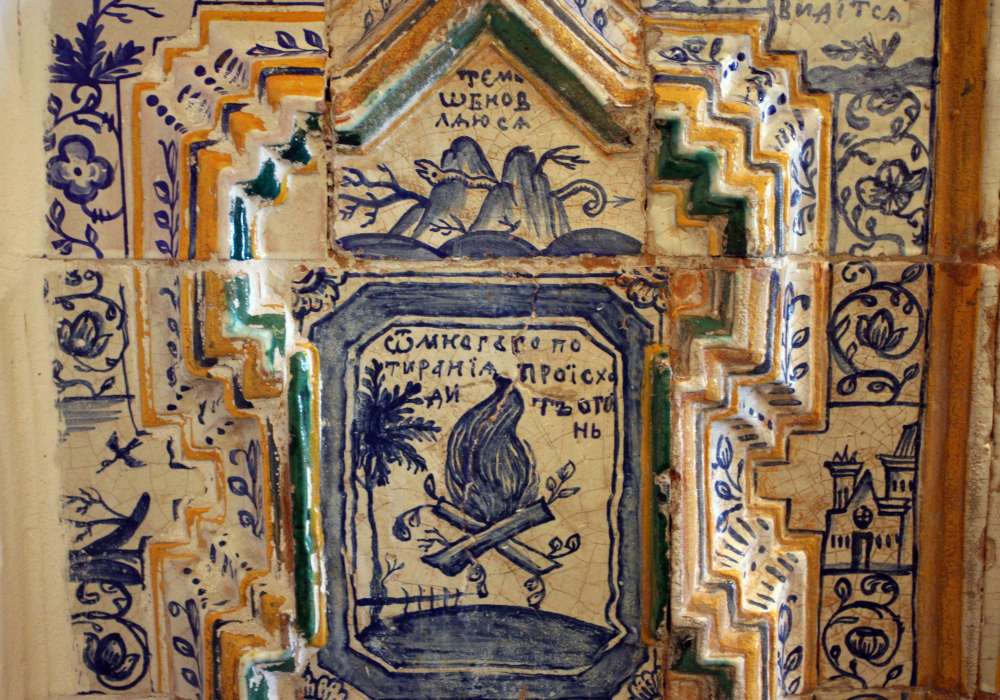 ВИДІТСА
ТЕМ
ѠБНОВ
ЛАЮСА
Ѿ МНОГАГО ПО
ТИРАНІА ПРОЇСХО
ДИ ТЪ ОГО
НЬ